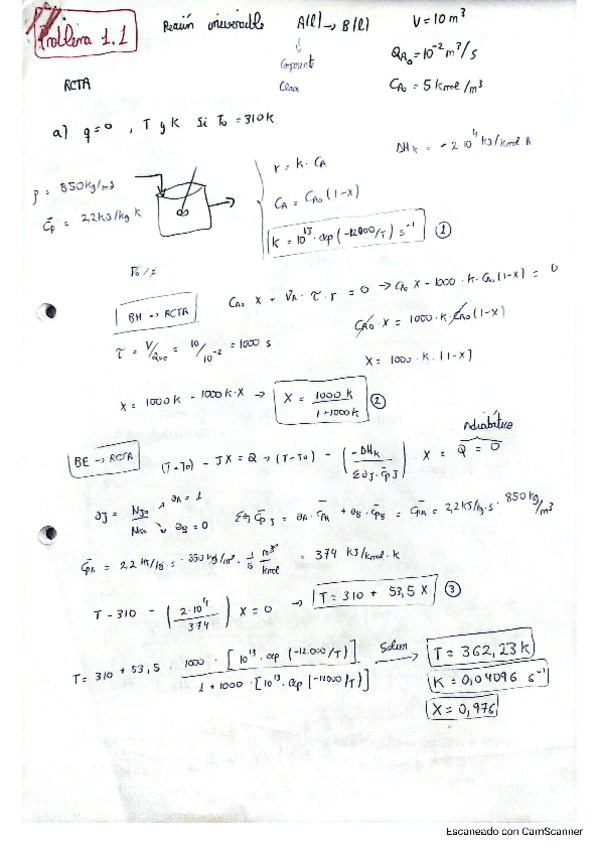 Problema 1.1
Reacción irreversible A(l) → B(l) V = 10 m³
Componente Clave
Q_A₀ = 10⁻² m³/s
RCTA
C_A₀ = 5 kmol/m³
a) q = 0, T y K Si T₀ = 310 k
ΔH_R = -2·10⁴ kJ/kmol A
ρ = 850 kg/m³
C̄p = 2,2 kJ/kg k
r = k·C_A
C_A = C_A₀ (1-x)
K = 10¹³·exp(-12000/T) s⁻¹ ①
BM → RCTA
C_A₀ X + ν_A·τ·r = 0 → C_A₀ X - 1000·k·C_A₀(1-x) = 0
C_A₀·X = 1000·k·C_A₀(1-x)
τ = V/Q_V₀ = 10/10⁻² = 1000 s
X = 1000·k·(1-x)
x = 1000k - 1000k·X → X = 1000k / 1+1000k ②
Adiabático
BE → RCTA
(T-T₀) - JX = Q → (T-T₀) - (-ΔH_R / Σθ_J·C̄p_J) X = Q = 0
θ_J = N_J₀/N_A₀ θ_A = 1 θ_B = 0
Σθ_J C̄p_J = θ_A·C̄p_A + θ_B·C̄p_B = C̄p_A = 2,2 kJ/kg·s·850 kg/m³
C̄p_A = 2,2 kJ/kg·s·850 kg/m³·1/5 m³/kmol = 374 kJ/kmol·k
T - 310 - (2·10⁴/374) X = 0 → T = 310 + 53,5 X ③
T = 310 + 53,5 · 1000·[10¹³·exp(-12.000/T)] / 1 + 1000·[10¹³·exp(-12000/T)]
T = 362,23 k
K = 0,04096 s⁻¹
X = 0,976
Escaneado con CamScanner